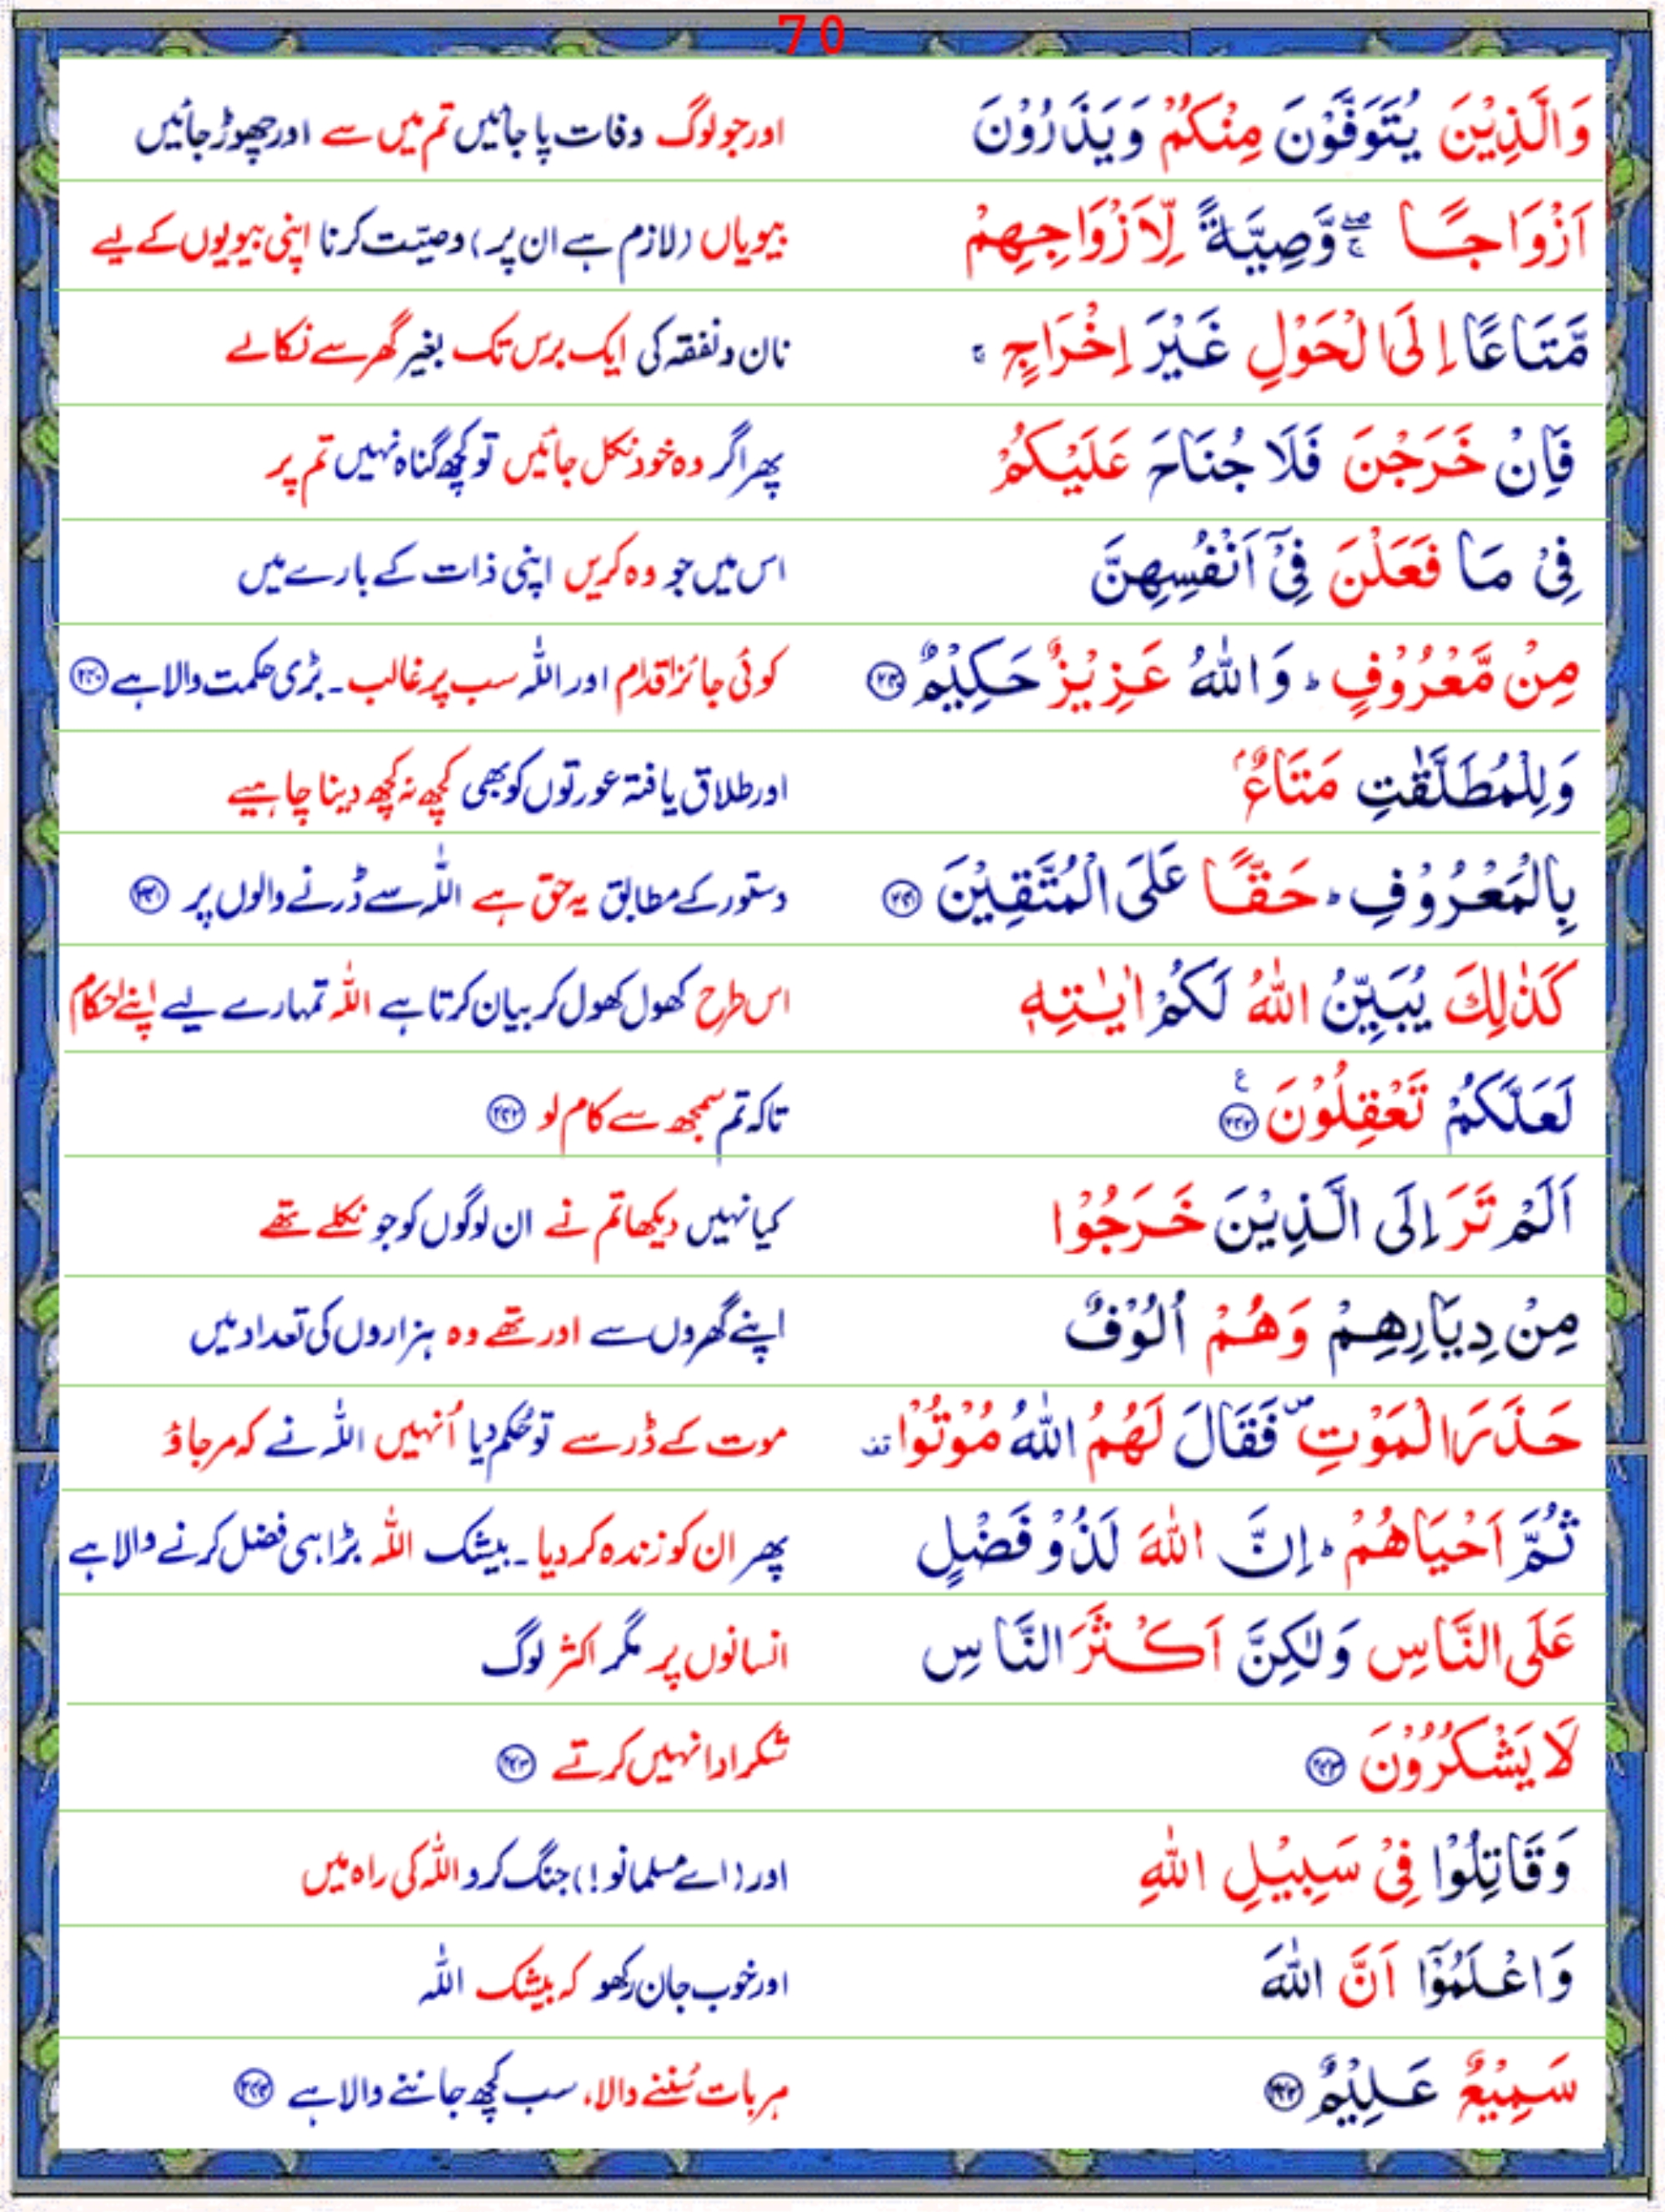 70
وَالَّذِيْنَ يُتَوَفَّوْنَ مِنْكُمْ وَيَذَرُوْنَ اور جو لوگ وفات پا جائیں تم میں سے اور چھوڑ جائیں
اَزْوَاجًا ۖۚ وَّصِيَّةً لِّاَزْوَاجِهِمْ بیویاں (لازم ہے ان پر) وصیّت کرنا اپنی بیویوں کے لیے
مَّتَاعًا اِلَى الْحَوْلِ غَيْرَ اِخْرَاجٍ ۚ نان و نفقہ کی ایک برس تک بغیر گھر سے نکالے
فَاِنْ خَرَجْنَ فَلَا جُنَاحَ عَلَيْكُمْ پھر اگر وہ خود نکل جائیں تو کچھ گناہ نہیں تم پر
فِيْ مَا فَعَلْنَ فِيْٓ اَنْفُسِهِنَّ اس میں جو وہ کریں اپنی ذات کے بارے میں
مِنْ مَّعْرُوْفٍ ؕ وَاللّٰهُ عَزِيْزٌ حَكِيْمٌ ۝۲۴۰ کوئی جائز اقدام اور اللّٰہ سب پر غالب۔ بڑی حکمت والا ہے ۝۲۴۰
وَلِلْمُطَلَّقٰتِ مَتَاعٌۢ اور طلاق یافتہ عورتوں کو بھی کچھ نہ کچھ دینا چاہیے
بِالْمَعْرُوْفِ ؕ حَقًّا عَلَى الْمُتَّقِيْنَ ۝۲۴۱ دستور کے مطابق یہ حق ہے اللّٰہ سے ڈرنے والوں پر ۝۲۴۱
كَذٰلِكَ يُبَيِّنُ اللّٰهُ لَكُمْ اٰيٰتِهٖ اس طرح کھول کھول کر بیان کرتا ہے اللّٰہ تمہارے لیے اپنے احکام
لَعَلَّكُمْ تَعْقِلُوْنَ ۝۲۴۲ ع تاکہ تم سمجھ سے کام لو ۝۲۴۲
اَلَمْ تَرَ اِلَى الَّذِيْنَ خَرَجُوْا کیا نہیں دیکھا تم نے ان لوگوں کو جو نکلے تھے
مِنْ دِيَارِهِمْ وَهُمْ اُلُوْفٌ اپنے گھروں سے اور تھے وہ ہزاروں کی تعداد میں
حَذَرَ الْمَوْتِ ۪ فَقَالَ لَهُمُ اللّٰهُ مُوْتُوْا قف موت کے ڈر سے تو حُکم دیا اُنہیں اللّٰہ نے کہ مر جاؤ
ثُمَّ اَحْيَاهُمْ ؕ اِنَّ اللّٰهَ لَذُوْ فَضْلٍ پھر ان کو زندہ کر دیا۔ بیشک اللّٰہ بڑا ہی فضل کرنے والا ہے
عَلَى النَّاسِ وَلٰكِنَّ اَكْثَرَ النَّاسِ انسانوں پر مگر اکثر لوگ
لَا يَشْكُرُوْنَ ۝۲۴۳ شکر ادا نہیں کرتے ۝۲۴۳
وَقَاتِلُوْا فِيْ سَبِيْلِ اللّٰهِ اور (اے مسلمانو!) جنگ کرو اللّٰہ کی راہ میں
وَاعْلَمُوْٓا اَنَّ اللّٰهَ اور خوب جان رکھو کہ بیشک اللّٰہ
سَمِيْعٌ عَلِيْمٌ ۝۲۴۴ ہر بات سُننے والا، سب کچھ جاننے والا ہے ۝۲۴۴